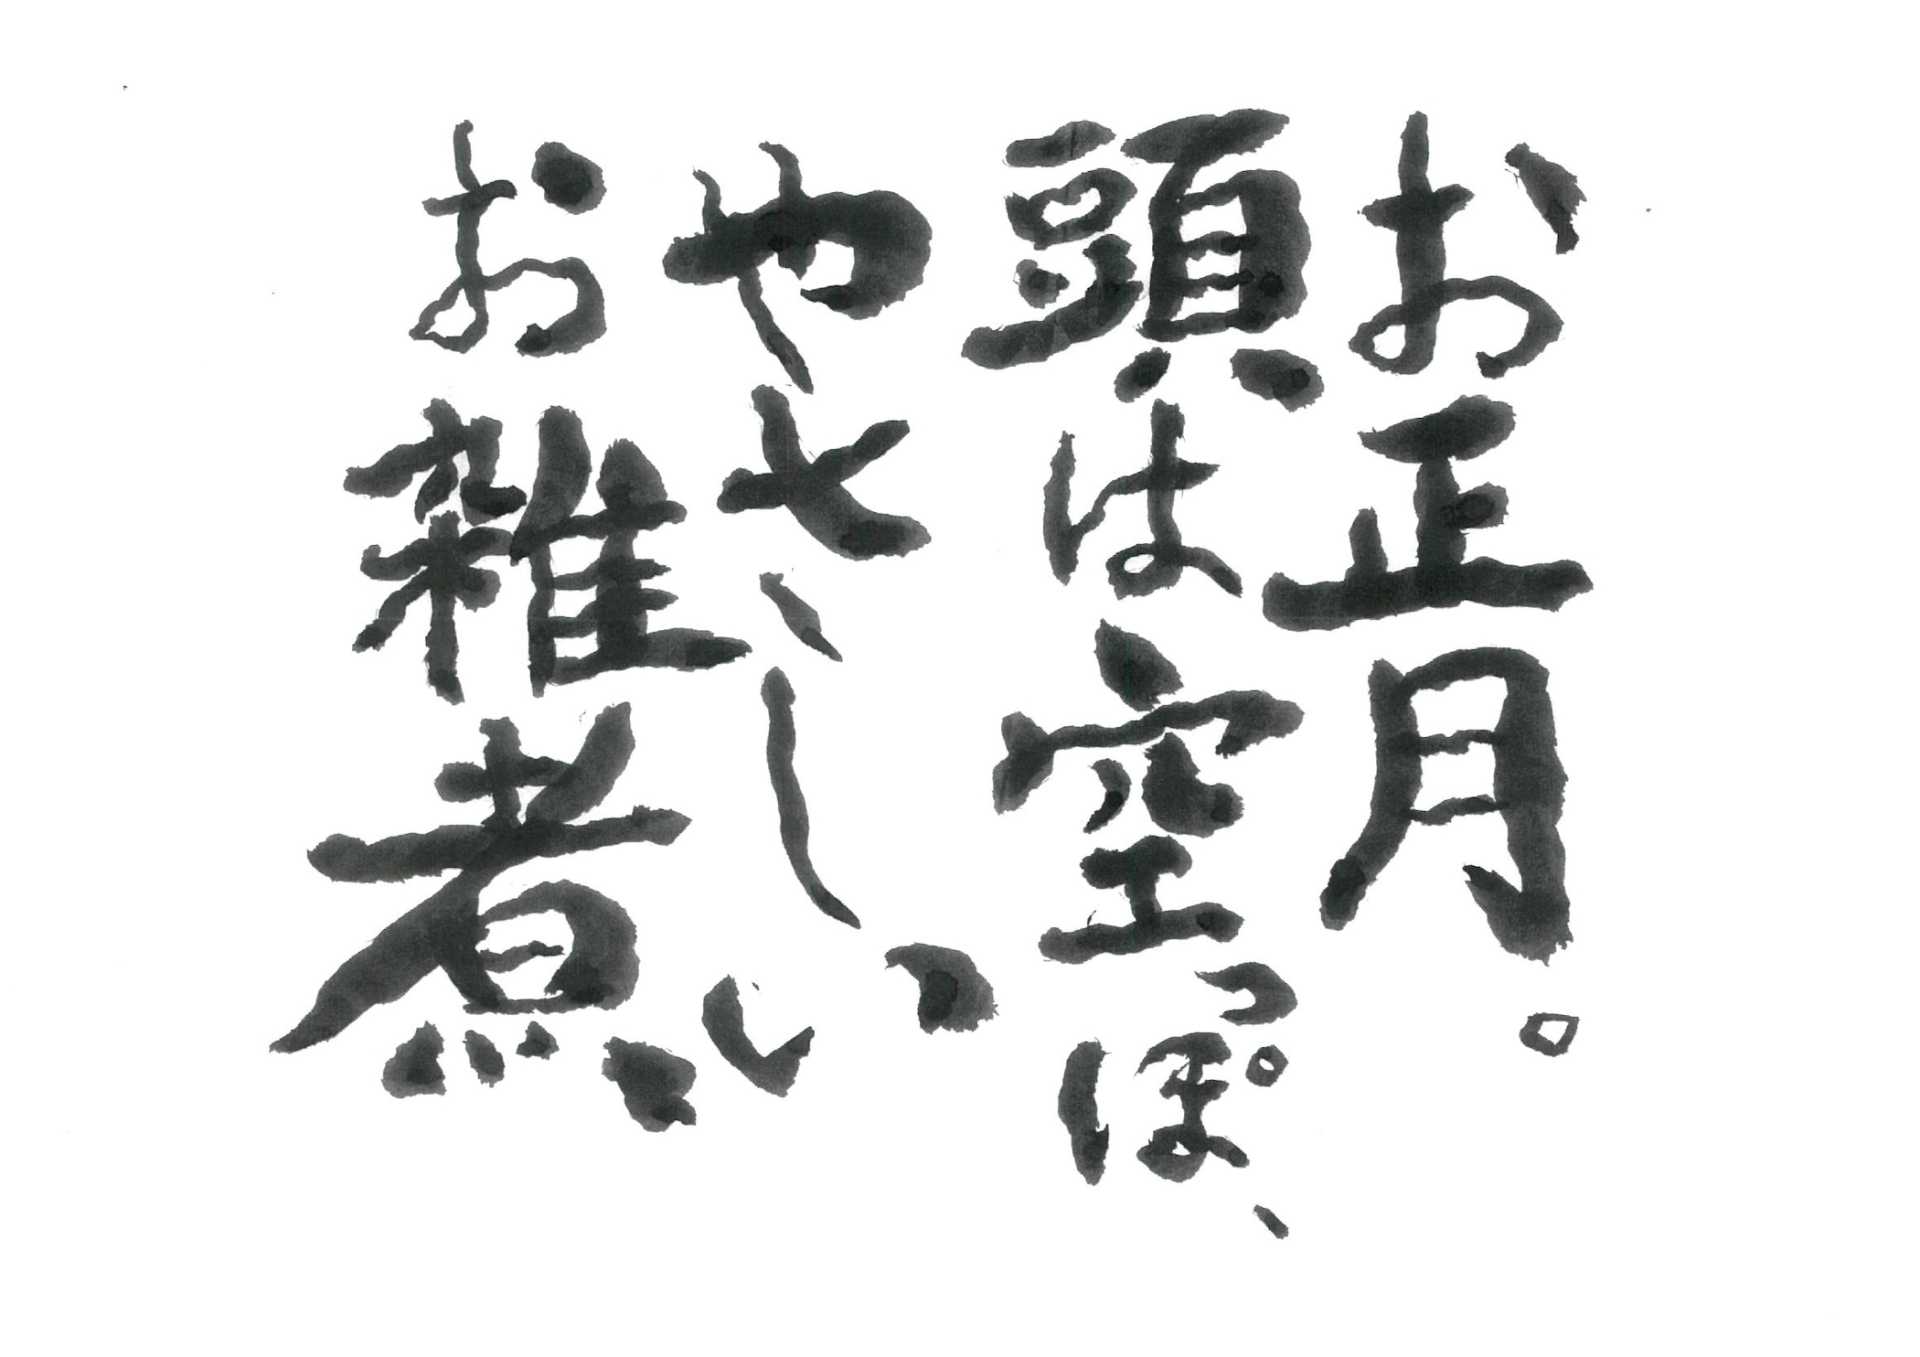 お正月。
頭は空っぽ、
やさしい
お雑煮